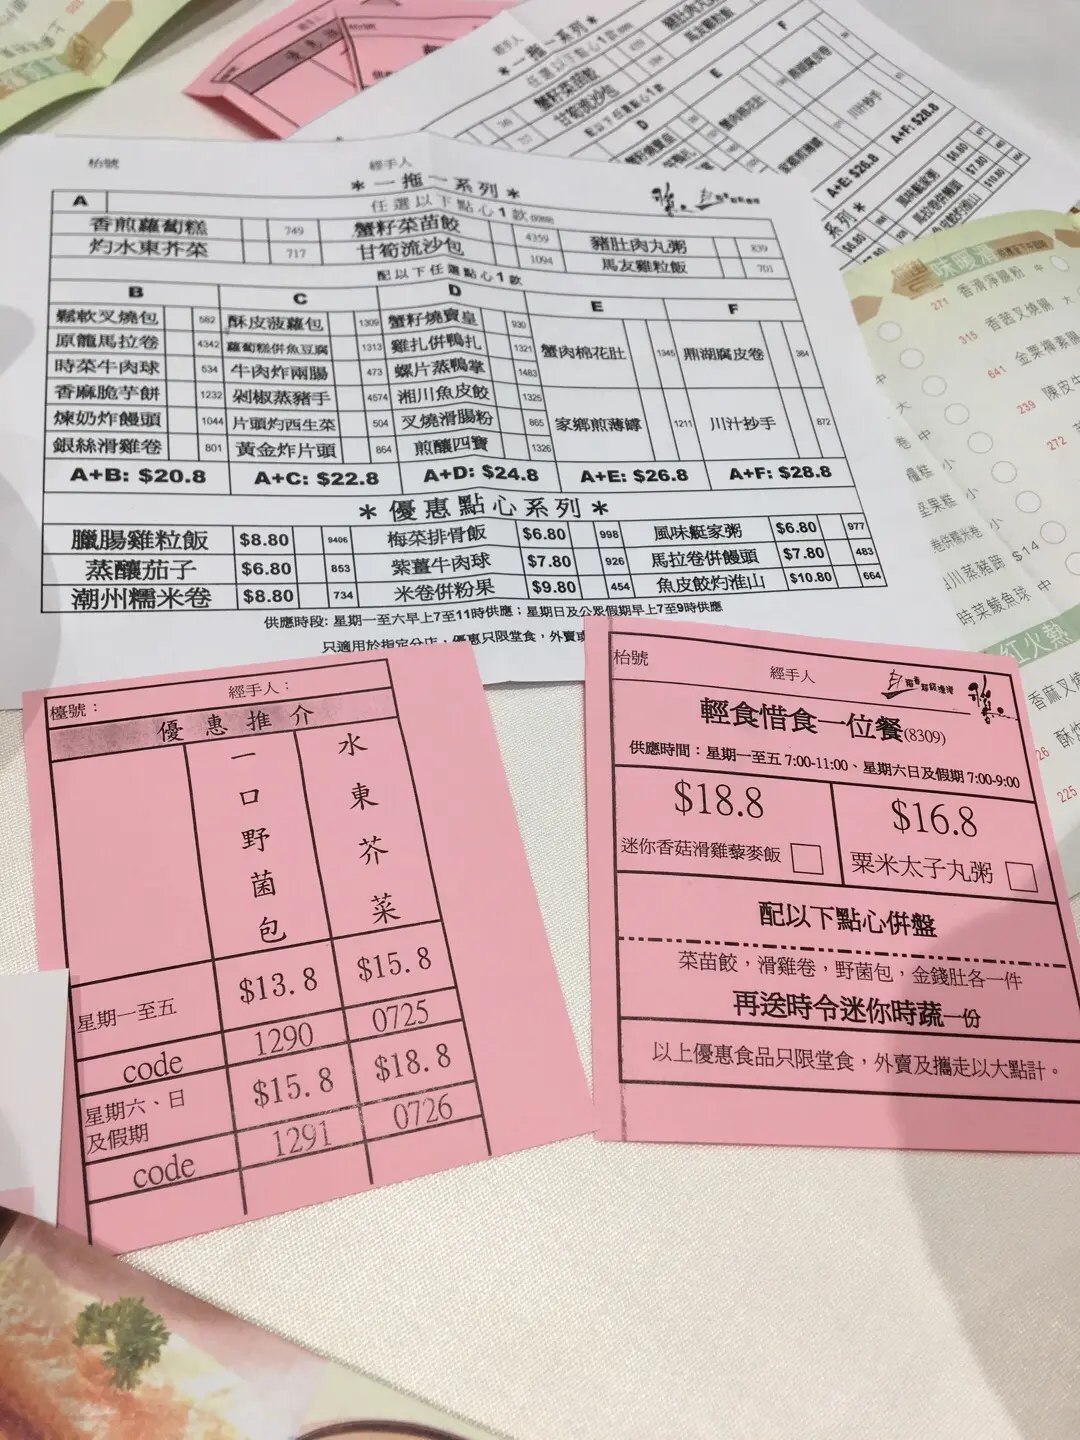 枱號
經手人
＊一拖一系列＊
A 任選以下點心1款
香煎蘿蔔糕 749 蟹籽菜苗餃 4359 豬肚肉丸粥 839
灼水東芥菜 717 甘筍流沙包 1094 馬友雞粒飯 701
配以下任選點心1款
B C D E F
鬆軟叉燒包 582 酥皮菠蘿包 1309 蟹籽燒賣皇 930
原籠馬拉卷 4342 蘿蔔糕併魚豆腐 1313 雞扎併鴨扎 1321 蟹肉棉花肚 1345 鼎湖腐皮卷 384
時菜牛肉球 534 牛肉炸兩腸 473 螺片蒸鴨掌 1483
香麻脆芋餅 1232 剁椒蒸豬手 4574 湘川魚皮餃 1325
煉奶炸饅頭 1044 片頭灼西生菜 504 叉燒滑腸粉 865 家鄉煎薄罉 1211 川汁抄手 872
銀絲滑雞卷 801 黃金炸片頭 864 煎釀四寶 1326
A+B: $20.8 A+C: $22.8 A+D: $24.8 A+E: $26.8 A+F: $28.8
＊優惠點心系列＊
臘腸雞粒飯 $8.80 9406 梅菜排骨飯 $6.80 998 風味艇家粥 $6.80 977
蒸釀茄子 $6.80 853 紫薑牛肉球 $7.80 926 馬拉卷併饅頭 $7.80 483
潮州糯米卷 $8.80 734 米卷併粉果 $9.80 454 魚皮餃灼淮山 $10.80 664
供應時段: 星期一至六早上7至11時供應；星期日及公眾假期早上7至9時供應
只適用於指定分店，優惠只限堂食，外賣
檯號：
經手人：
優惠推介
一口野菌包
水東芥菜
星期一至五 $13.8 $15.8
code 1290 0725
星期六、日及假期 $15.8 $18.8
code 1291 0726
枱號
經手人
輕食惜食一位餐(8309)
供應時間：星期一至五 7:00-11:00、星期六日及假期 7:00-9:00
$18.8 $16.8
迷你香菇滑雞藜麥飯 粟米太子丸粥
配以下點心併盤
菜苗餃，滑雞卷，野菌包，金錢肚各一件
再送時令迷你時蔬一份
以上優惠食品只限堂食，外賣及攜走以大點計。
經手人
＊一拖一系列＊
任選以下點心1款
蟹籽菜苗餃
甘筍流沙包
配以下任選點心1款
D
E
F
蟹肉棉花肚
川汁抄手
A+E: $26.8
A+F: $28.8
系列＊
風味艇家粥 $6.80
馬拉卷併饅頭 $7.80
魚皮餃灼淮山 $10.80
271 香滑淨腸粉 中
315 香茜叉燒腸 大
641
239
272
$14
時菜鯪魚球 中
紅火熱
225